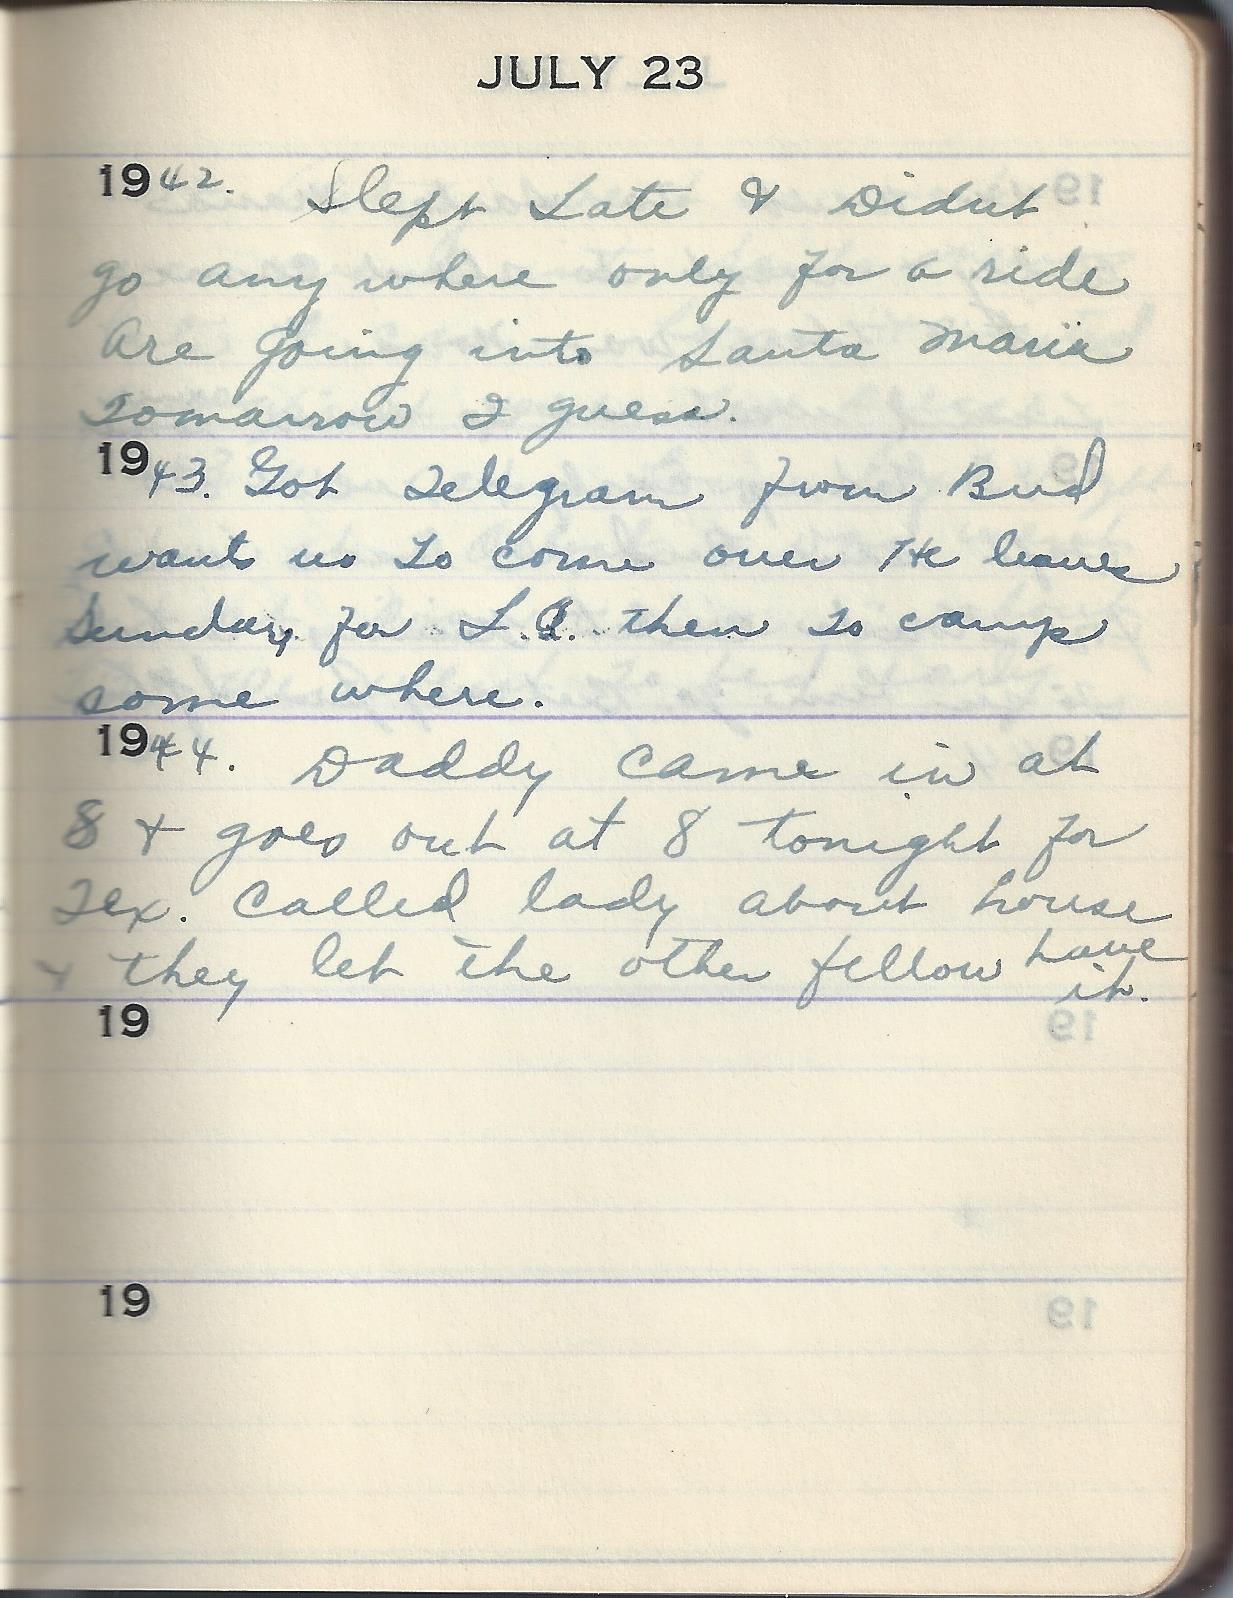 JULY 23
1942. Slept Late & Didnt
go any where only for a ride
Are Going into Santa Maria
Tomarrow I guess.
1943. Got Telegram from Bud
wants us to come over He leaves
Sunday for L.A. then to camp
some where.
1944. Daddy came in at
8 & goes out at 8 tonight for
Tex. Called lady about house
& they let the other fellow have
it.
19
19